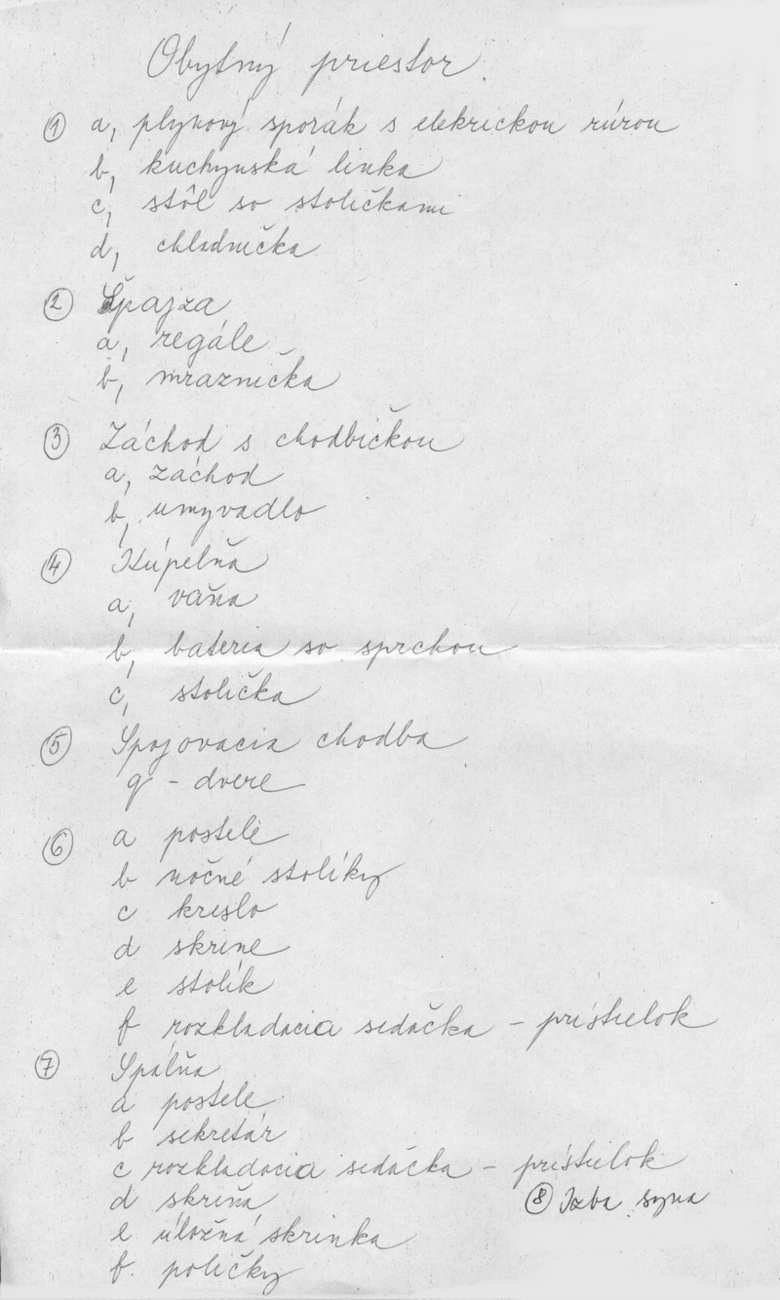 Obytný priestor.
① a, plynový sporák s elekrickou rúrou
b, kuchynská linka
c, stôl so stoličkami
d, chladnička
② Špajza
a, regále
b, mraznička
③ Záchod s chodbičkou
a, záchod
b, umyvadlo
④ Kúpelňa
a, vaňa
b, bateria so sprchou
c, stolička
⑤ Spojovacia chodba
g - dvere
⑥ a postele
b nočné stolíky
c kreslo
d skrine
e stolík
f rozkladacia sedačka - prístielok
⑦ Spálňa
a postele
b sekretár
c rozkladacia sedačka - prístielok
d skriňa
⑧ Izba syna
e úložná skrinka
f. poličky